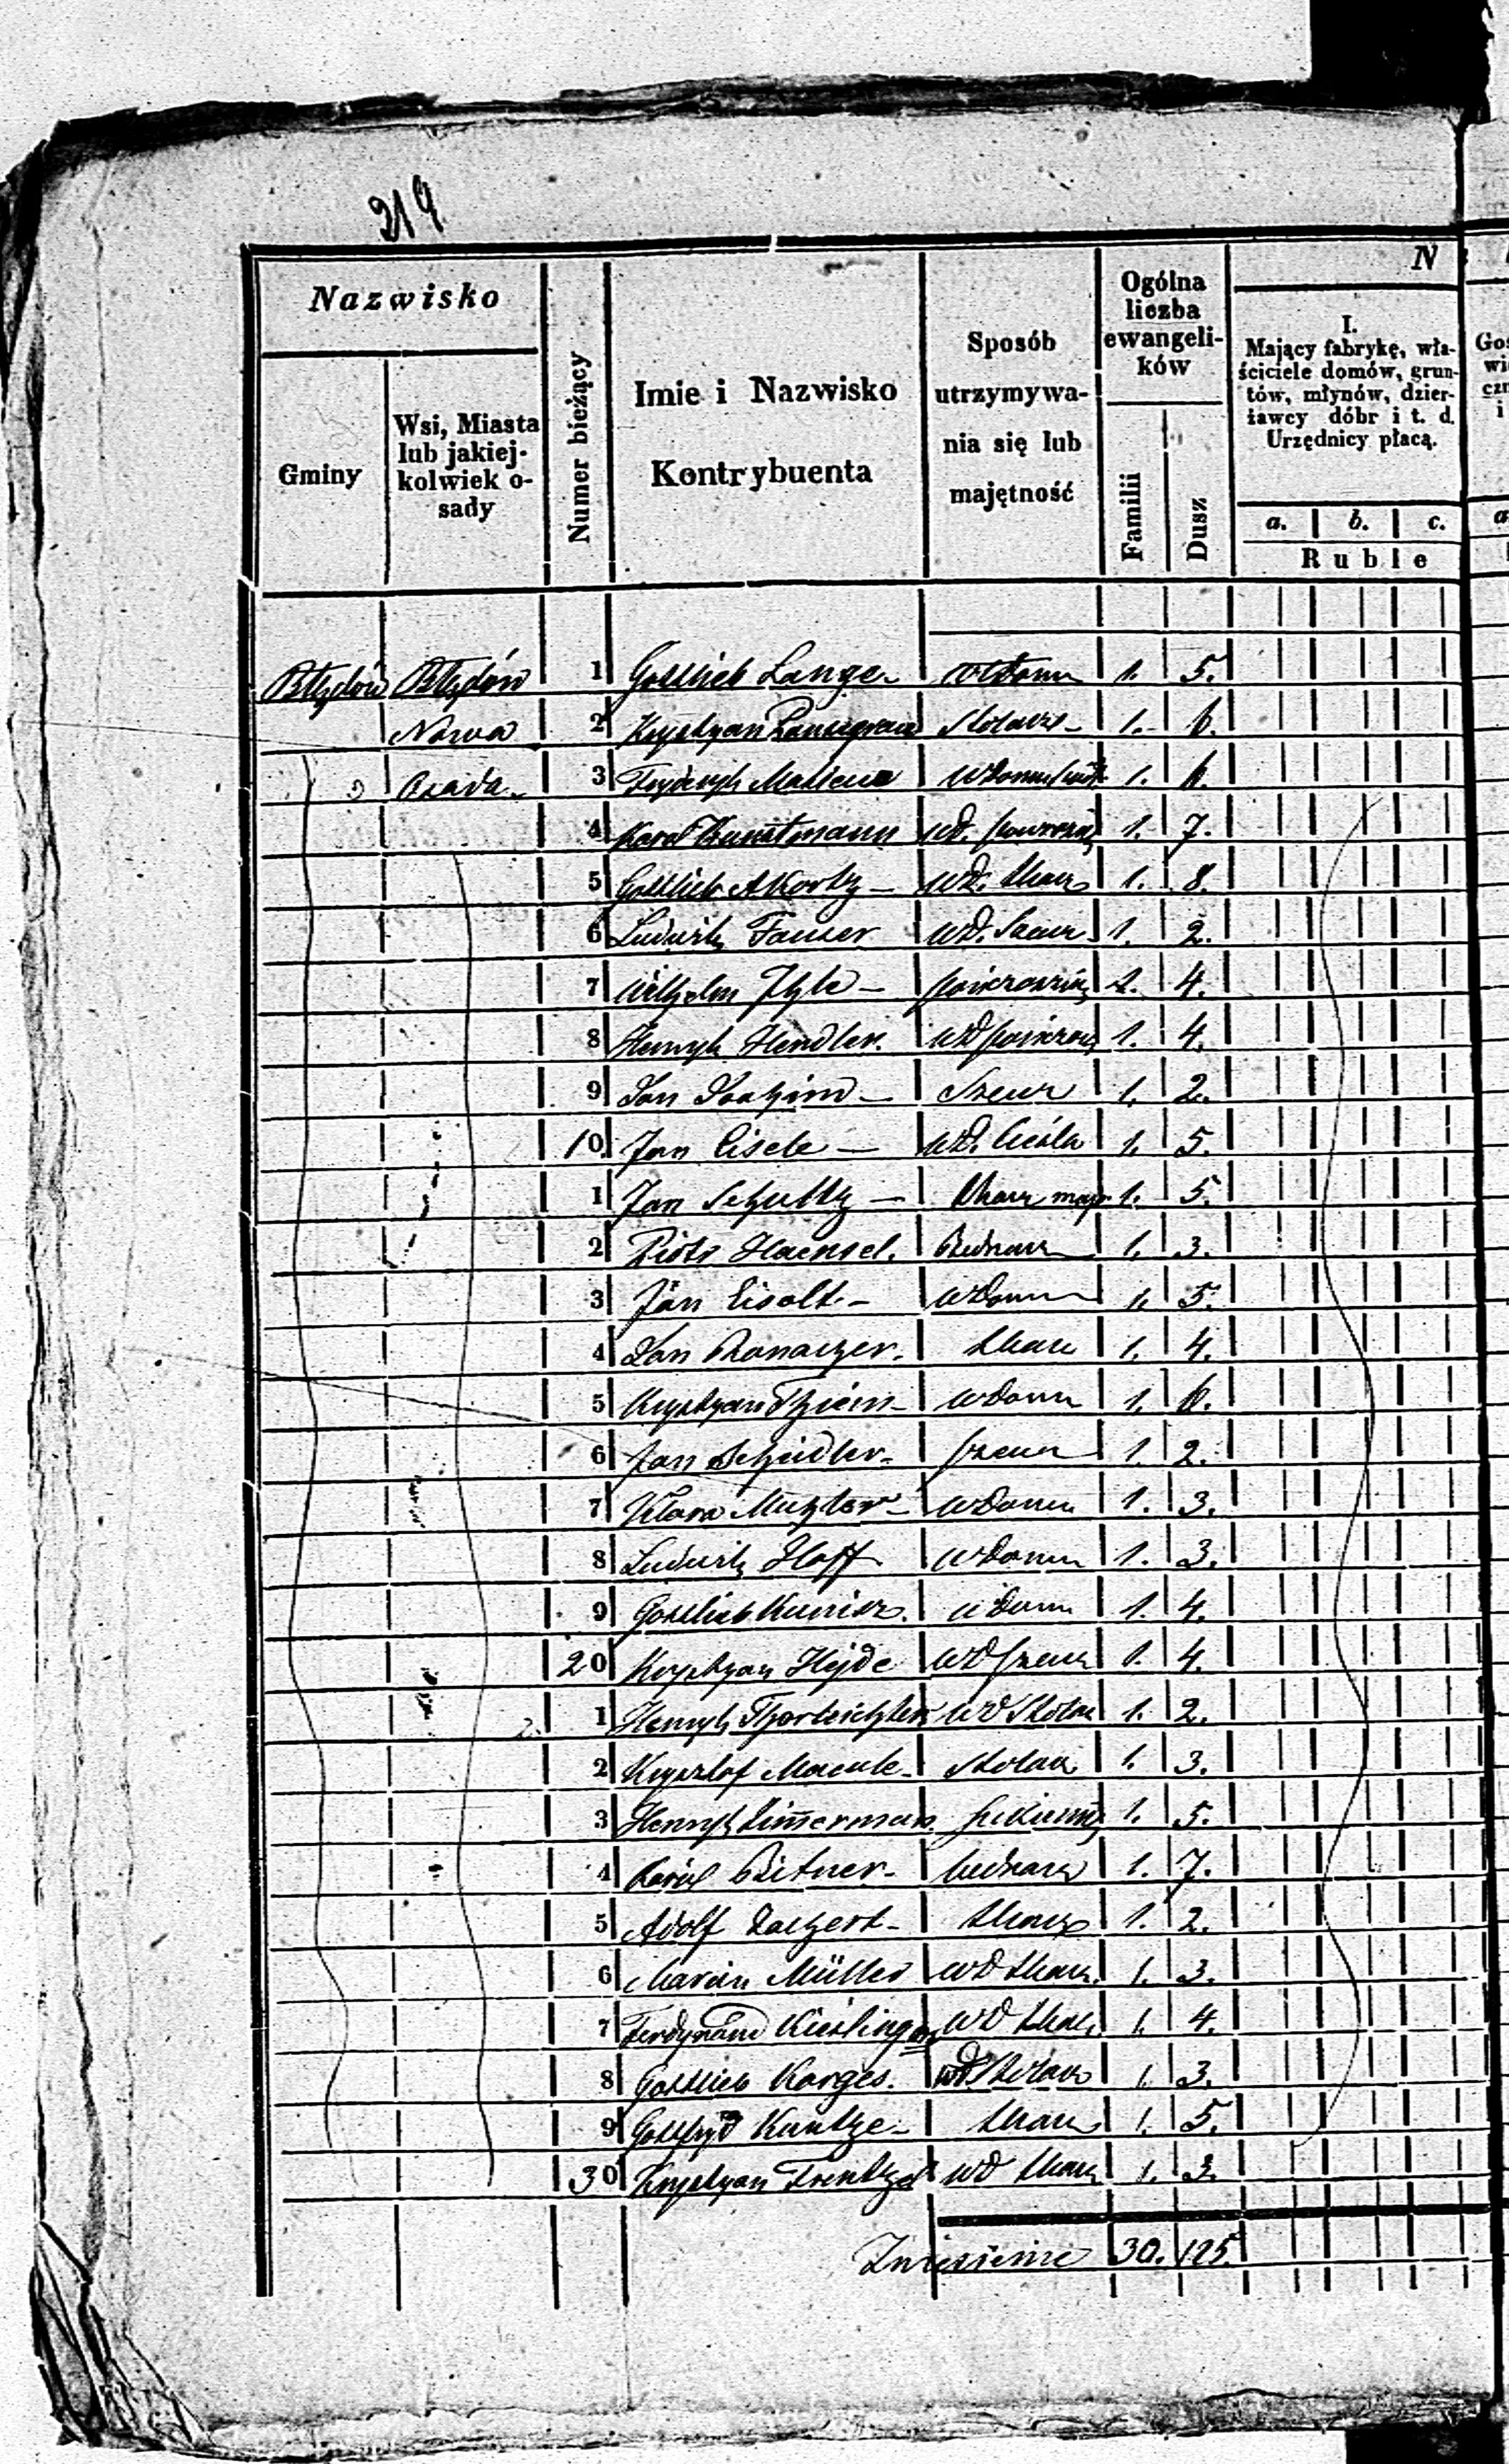 219
N
Nazwisko
Gminy
Wsi, Miasta
lub jakiej-
kolwiek o-
sady
Numer bieżący
Imie i Nazwisko
Kontrybuenta
Sposób
utrzymywa-
nia się lub
majętność
Ogólna
liczba
ewangeli-
ków
Familii
Dusz
I.
Mający fabrykę, wła-
ściciele domów, grun-
tów, młynów, dzier-
żawcy dóbr i t. d.
Urzędnicy płacą.
a. b. c.
Ruble
Błędów Błędów 1 Gottlieb Langer wł domu 1. 5.
Nowa 2 Krystyan Stolarz 1. 6.
Osada 3 Fryderyk 1. 6.
4 Karol Kunstmann wł. 1. 7.
5 Gottlieb wł. tkacz 1. 8.
6 Ludwik Fauser wł. Szewc 1. 2.
7 Wilhelm 1. 4.
8 Henryk Hendler. wł 1. 4.
9 Jan Joachim Szewc 1. 2.
10 Jan Eisele wł. Cieśla 1. 5.
1 Jan Schultz tkacz majs 1. 5.
2 Piotr Haensel. Bednarz 1. 3.
3 Jan Eisolt wł domu 1. 5.
4 Jan tkacz 1. 4.
5 Krystyan Thiem wł domu 1. 6.
6 Jan Scheidler szewc 1. 2.
7 Klara wł domu 1. 3.
8 Ludwik Hoff wł domu 1. 3.
9 Gottlieb wł domu 1. 4.
20 Krystyan Hejde wł szewc 1. 4.
1 Henryk wł Stolarz 1. 2.
2 Krysztof Stolarz 1. 3.
3 Henryk Zim̄erman 1. 5.
4 Karol Bitner bednarz 1. 7.
5 Adolf Zachert tkacz 1. 2.
6 Marcin Müller wł tkacz 1. 3.
7 Ferdynand wł tkacz 1. 4.
8 Gottlieb Karges. wł Stolarz 1. 3.
9 Gottfryd Kuntze tkacz 1. 5.
30 Krystyan Trentzel wł tkacz 1. 3.
Zniesienie 30. 125.